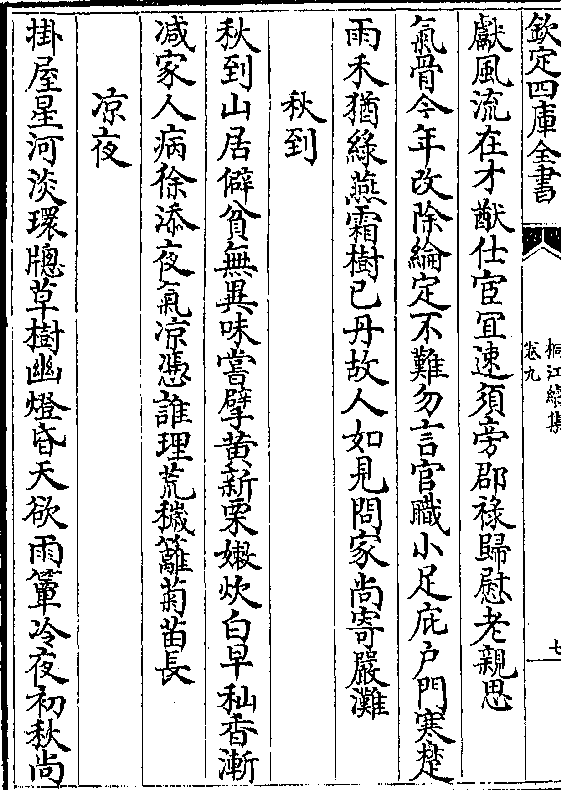 欽定四庫全書
桐江續集
卷九
七
獻風流在才猷仕宦冝速須旁郡祿歸慰老親思
氣骨今年改除綸定不難勿言官職小足庇户門寒楚
雨禾猶綠燕霜樹已丹故人如見問家尚寄嚴灘
秋到
秋到山居僻貧無異味嘗擘黄新栗嫩炊白早秈香漸
减家人病徐添夜氣凉憑誰理荒穢籬菊苗長
凉夜
掛屋星河淡環牕草樹幽燈昏天欲雨簟冷夜初秋尚